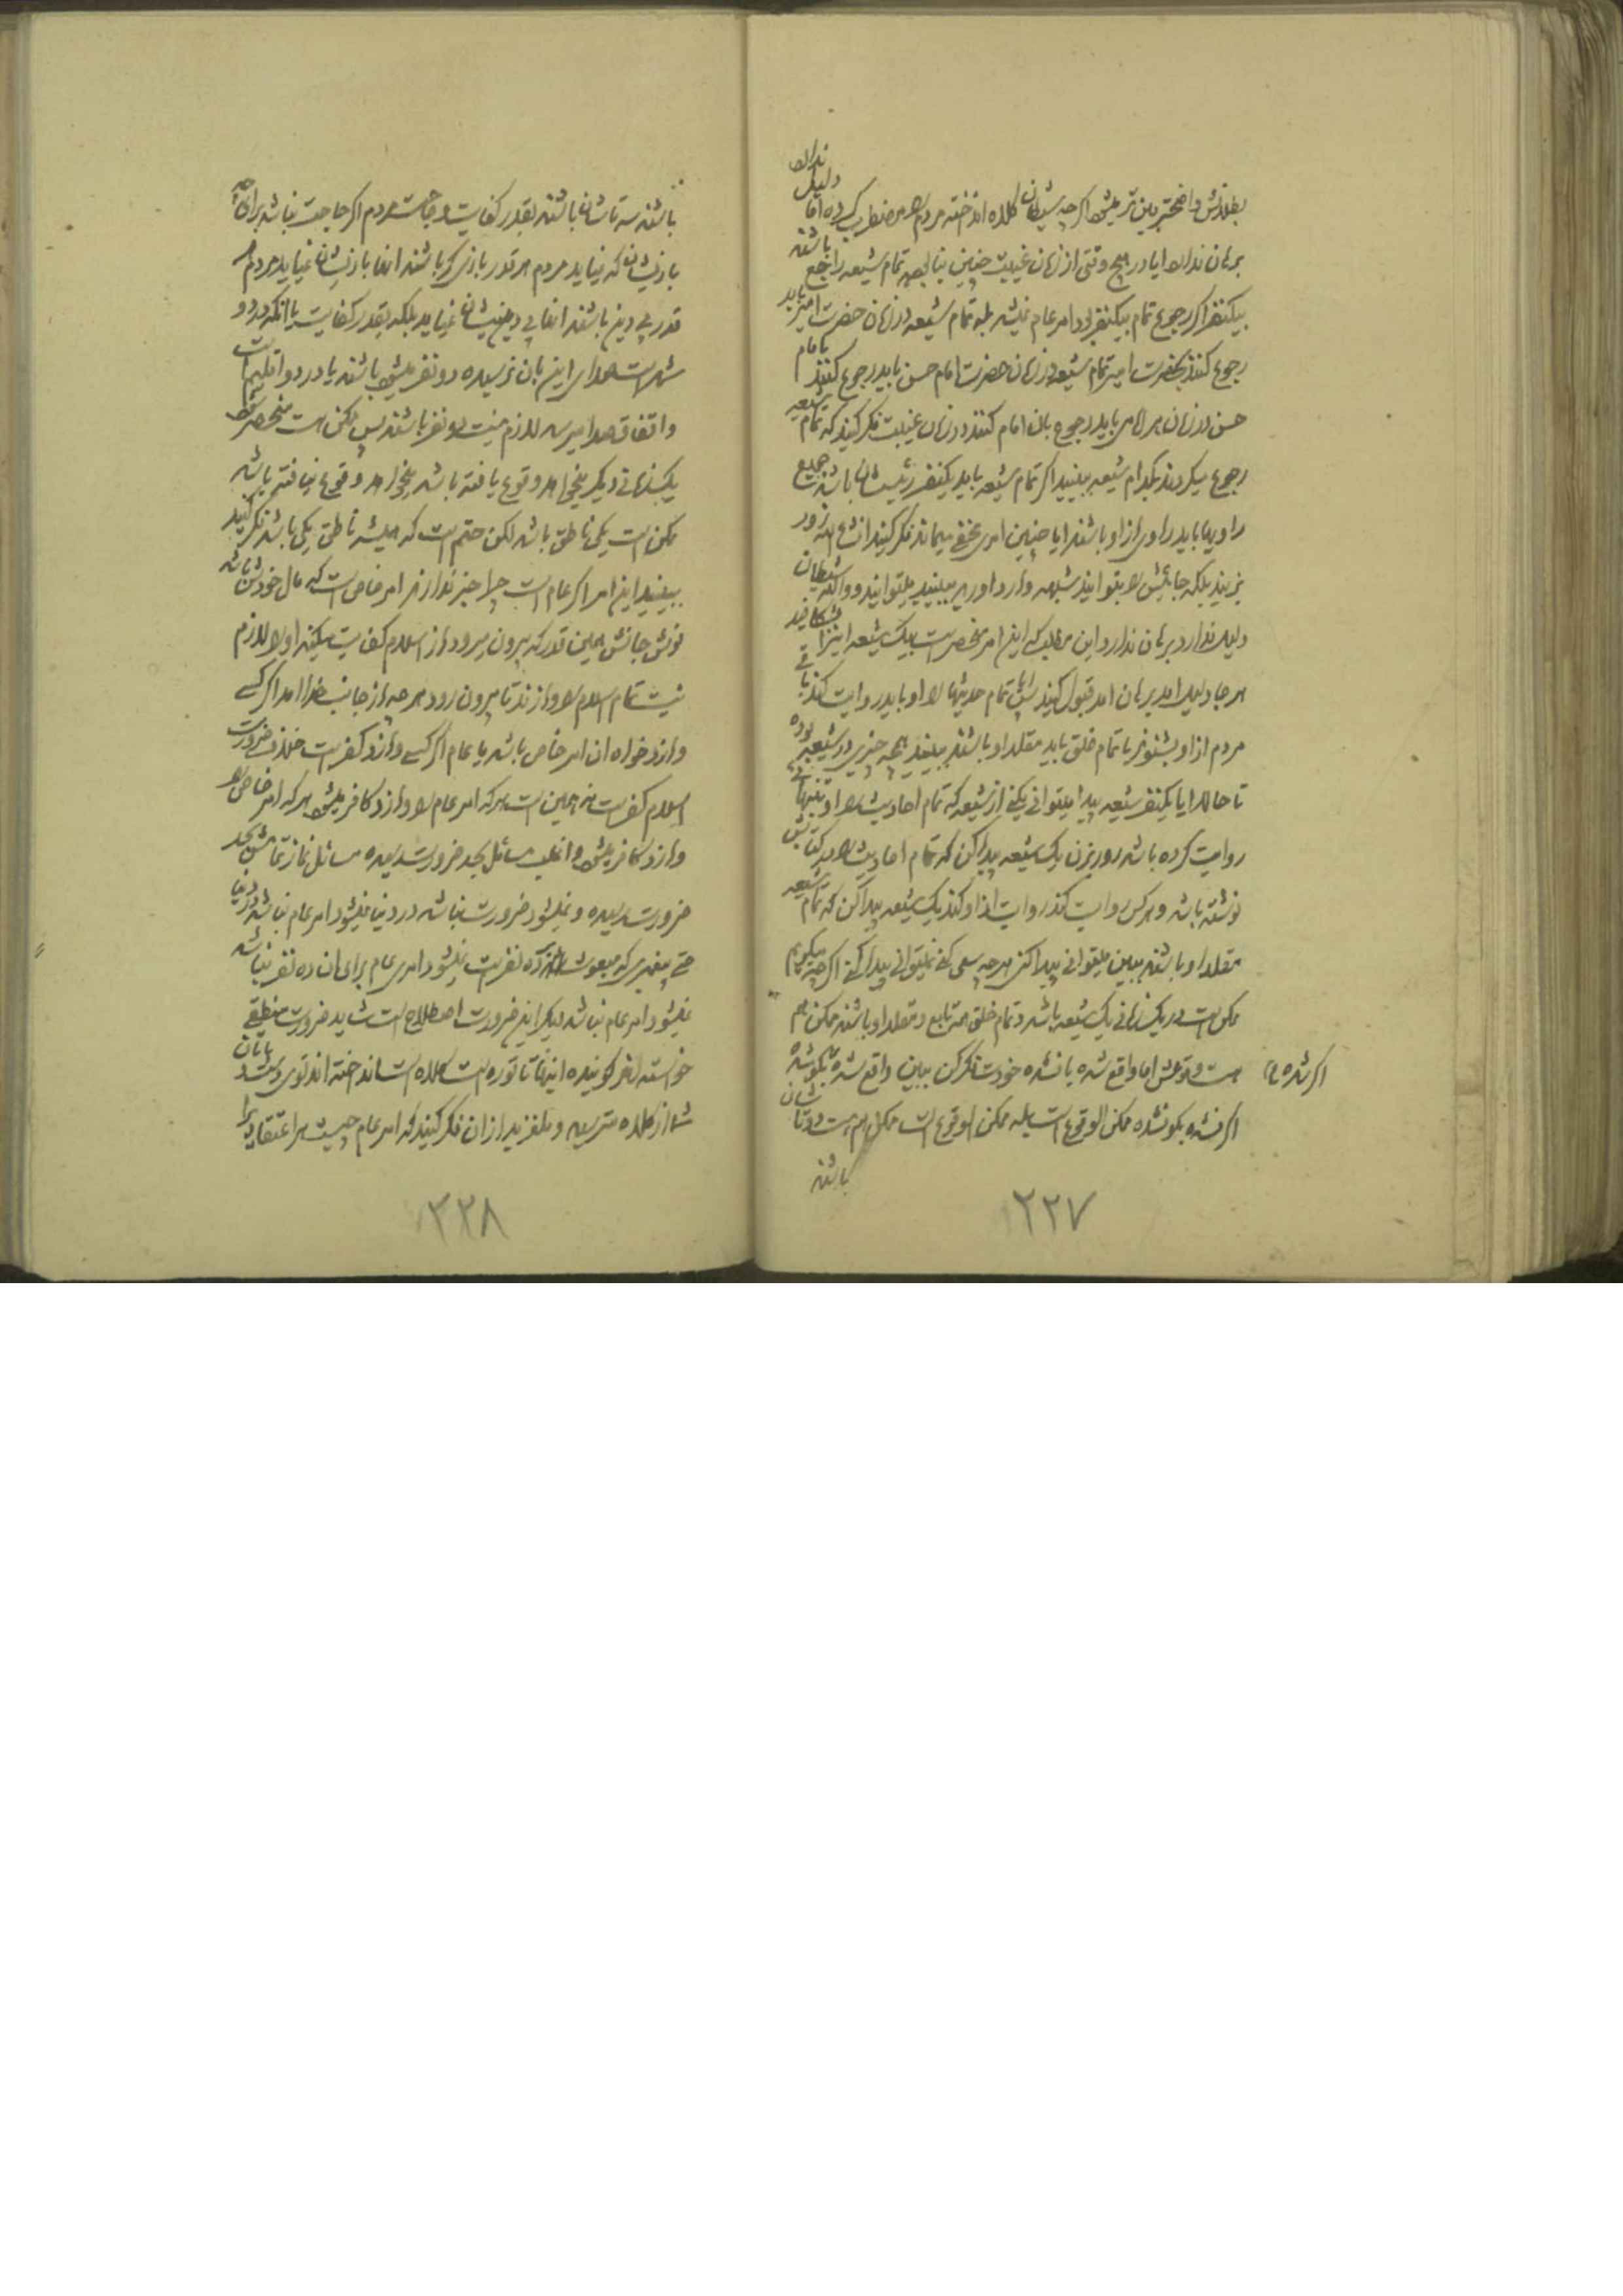 بطلانش واضحتر ببین تر میشود اگر چه شیطان کلاه انداخته مردم را مضطرب کرده اما دلیل ندارد
برهان ندارد ایا در هیچ وقتی از زمان غیبت چنین بنا بوده تمام شیعه راجع باشند
بیکنفر اگر رجوع تمام بیکنفر بود امر عام میشد بله تمام شیعه در زمان حضرت امیر باید
رجوع کنند بحضرت امیر تمام شیعه در زمان حضرت امام حسن باید رجوع کنند بامام
حسن در زمان هر امامی باید رجوع بان امام کنند در زمان غیبت فکر کنید که تمام شیعه
رجوع میکردند بکدام شیعه ببینید اگر تمام شیعه باید یکنفر رئیسشان باشد و جمیع
راویها باید راوی از او باشند ایا چنین امری مخفی میماند فکر کنید انشاء الله زور
نزنید بلکه جائیش را بتوانید شبهه وارد اورید ببینید میتوانید و والله شیطان
دلیل ندارد برهان ندارد این مطلب که این امر منحصر است بیک شیعه اینرا بشکافید
هر جا دلیل امد برهان امد قبول کنید ایا تمام حدیثها را او باید روایت کند باقی
مردم از او بشنوند یا تمام خلق باید مقلد او باشند ببینید همچه چیزی در شیعه بوده
تا حالا ایا یکنفر شیعه پیدا میتوانی بکنی از شیعه که تمام احادیث را او بتنهائی
روایت کرده باشد زور بزن یک شیعه پیدا کن که تمام احادیث را در کتابش
نوشته باشد و هر کس روایت کند روایت از او کند یک شیعه پیدا کن که تمام شیعه
مقلد او باشند ببین میتوانی پیدا کنی هر چه سعی کنی نمیتوانی پیدا کنی اگر چه میگویم
ممکن است در یک زمانی یک شیعه باشد و تمام خلق همه تابع و مقلد او باشند ممکن هم
هست وقوعش اما واقع شده یا نشده خودت فکر کن ببین واقع شده بگو شده
اگر شده یا
اگر نشده بگو نشده ممکن الوقوع است بله ممکن الوقوع است ممکن هم هست دو تاشان
باشند
۲۲۷
باشند سه تاشان باشند بقدر کفایت و حاجت مردم اگر حاجت نباشد برای چه
بازیشان که نیاید مردم هر قدر بازی گر باشند انها بازیشان نمیاید مردم هر
قدر بی دین باشند انها بی دینیشان نمیاید بلکه بقدر کفایت یا انکه در دو
شهر است صدای این بان نرسیده دو نفر میشود باشند یا در دو اقلیم است
و اتفاق صدا میرسد لازم نیست دو نفر باشند پس ممکن است منحصر شود
یکزمانی دیگر میخواهد وقوع یافته باشد میخواهد وقوع نیافته باشد
ممکن است یکی ناطق باشد لکن حتم است که همیشه ناطق یکی باشد فکر کنید
ببینید این امر اگر عام است چرا خبر ندارند امر خاص است که مال خودشان باشد
نوش جانش همین قدر که بیرون میرود از اسلام کفایت میکند او را لازم
نیست تمام اسلام را وازند تا بیرون رود هر چه از جانب خدا امد اگر کسی
وازد خواه ان امر خاص باشد یا عام اگر کسی وازد کفر است خلاف ضرورت
اسلام کفر است نه همین است هر که امر عام را وازد کافر میشود هر که امر خاص را
وازد کافر میشود و اغلب مسائل بحد ضرورت رسیده مسائل نماز تمامش بحد
ضرورت رسیده و نمیشود ضرورت نباشد در دنیا نمیشود امر عام نباشد در دنیا
حتی پیغمبری که مبعوث بر ده نفر است نمیشود امری عام برای ان ده نفر نباشد
نمیشود امر عام نباشد دیگر این ضرورت اصطلاح است شاید ضرورت منطقی
خواسته اند گوینده اینها تاتوره است کلاه است انداخته اند توی دستتان
شما از کلاه مترسید و ملغزید از ان فکر کنید که امر عام چیست هر اعتقادی را
۲۲۸